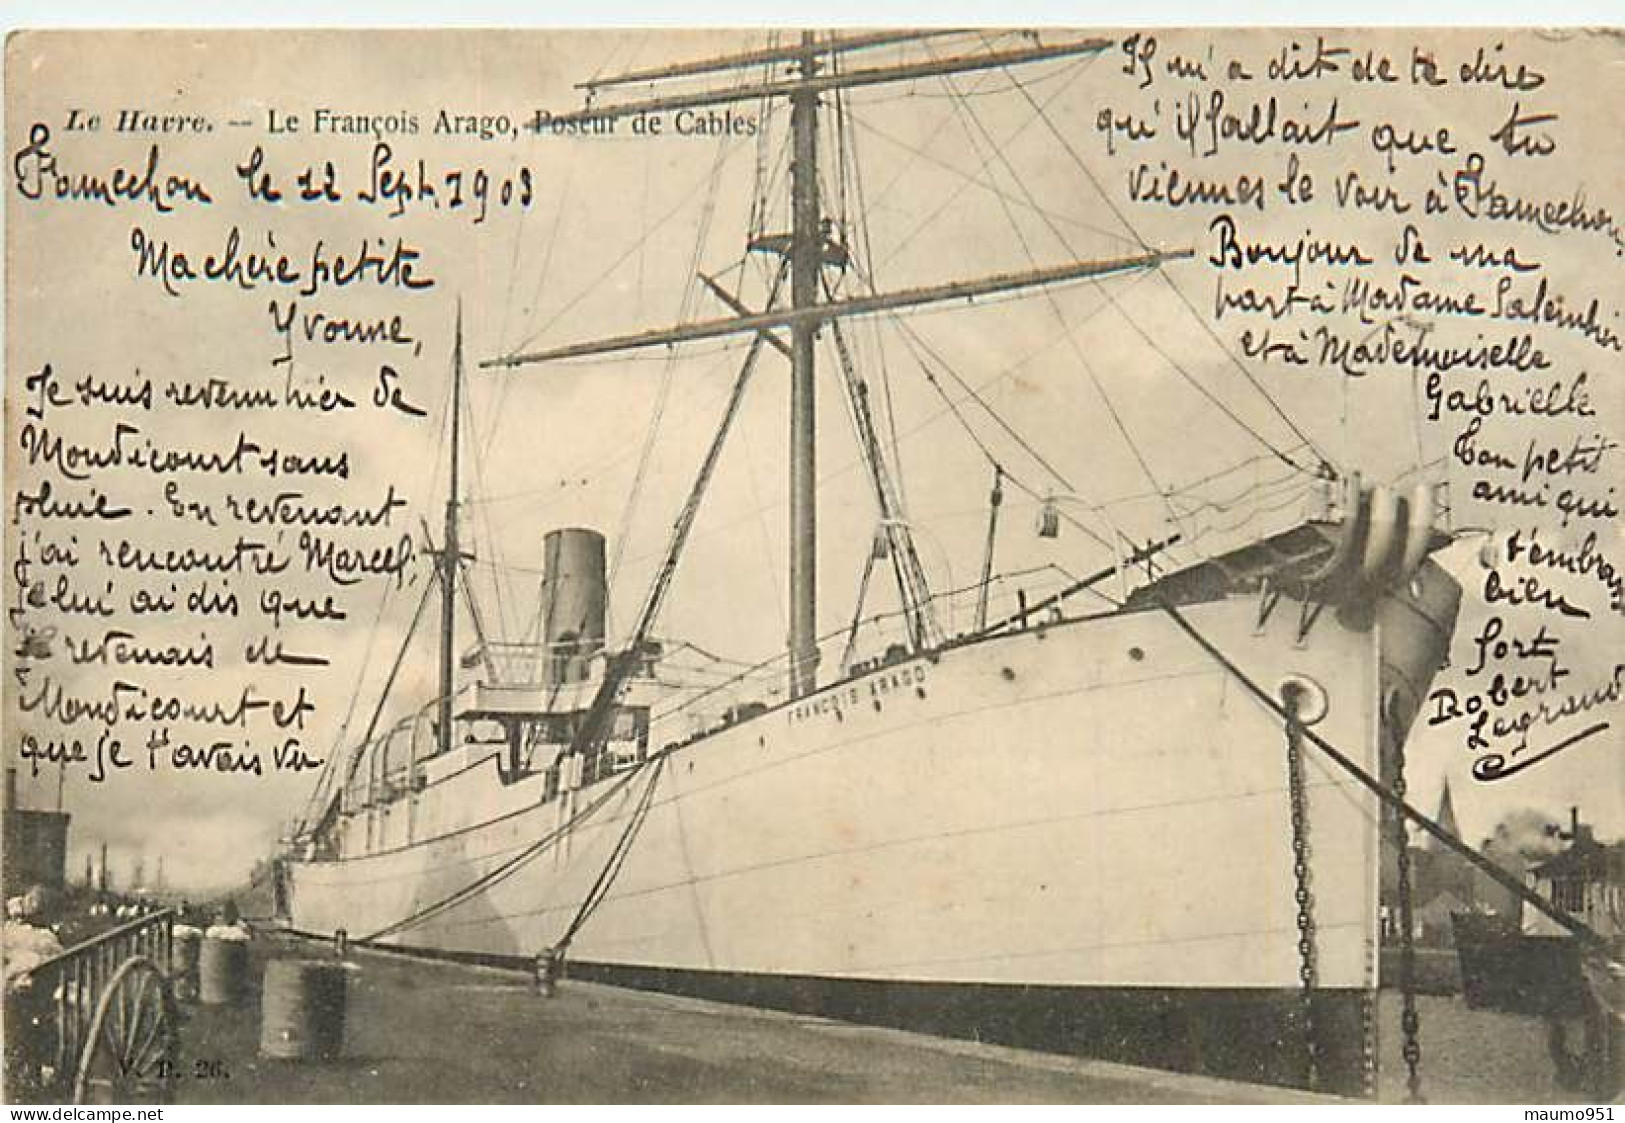 Le Havre. — Le François Arago, Poseur de Cables
Famechon le 12 Sept. 1903
Ma chère petite
Yvonne,
Je suis revenu hier de
Mondicourt sans
pluie. En revenant
j'ai rencontré Marcel;
je lui ai dis que
je revenais de
Mondicourt et
que je t'avais vu
Il m'a dit de te dire
qu'il fallait que tu
viennes le voir à Famechon.
Bonjour de ma
part à Madame Salembier
et à Mademoiselle
Gabrielle
Ton petit
ami qui
t'embrass
bien
fort
Robert
Legrand
FRANÇOIS ARAGO
V. D. 26.
maumo951